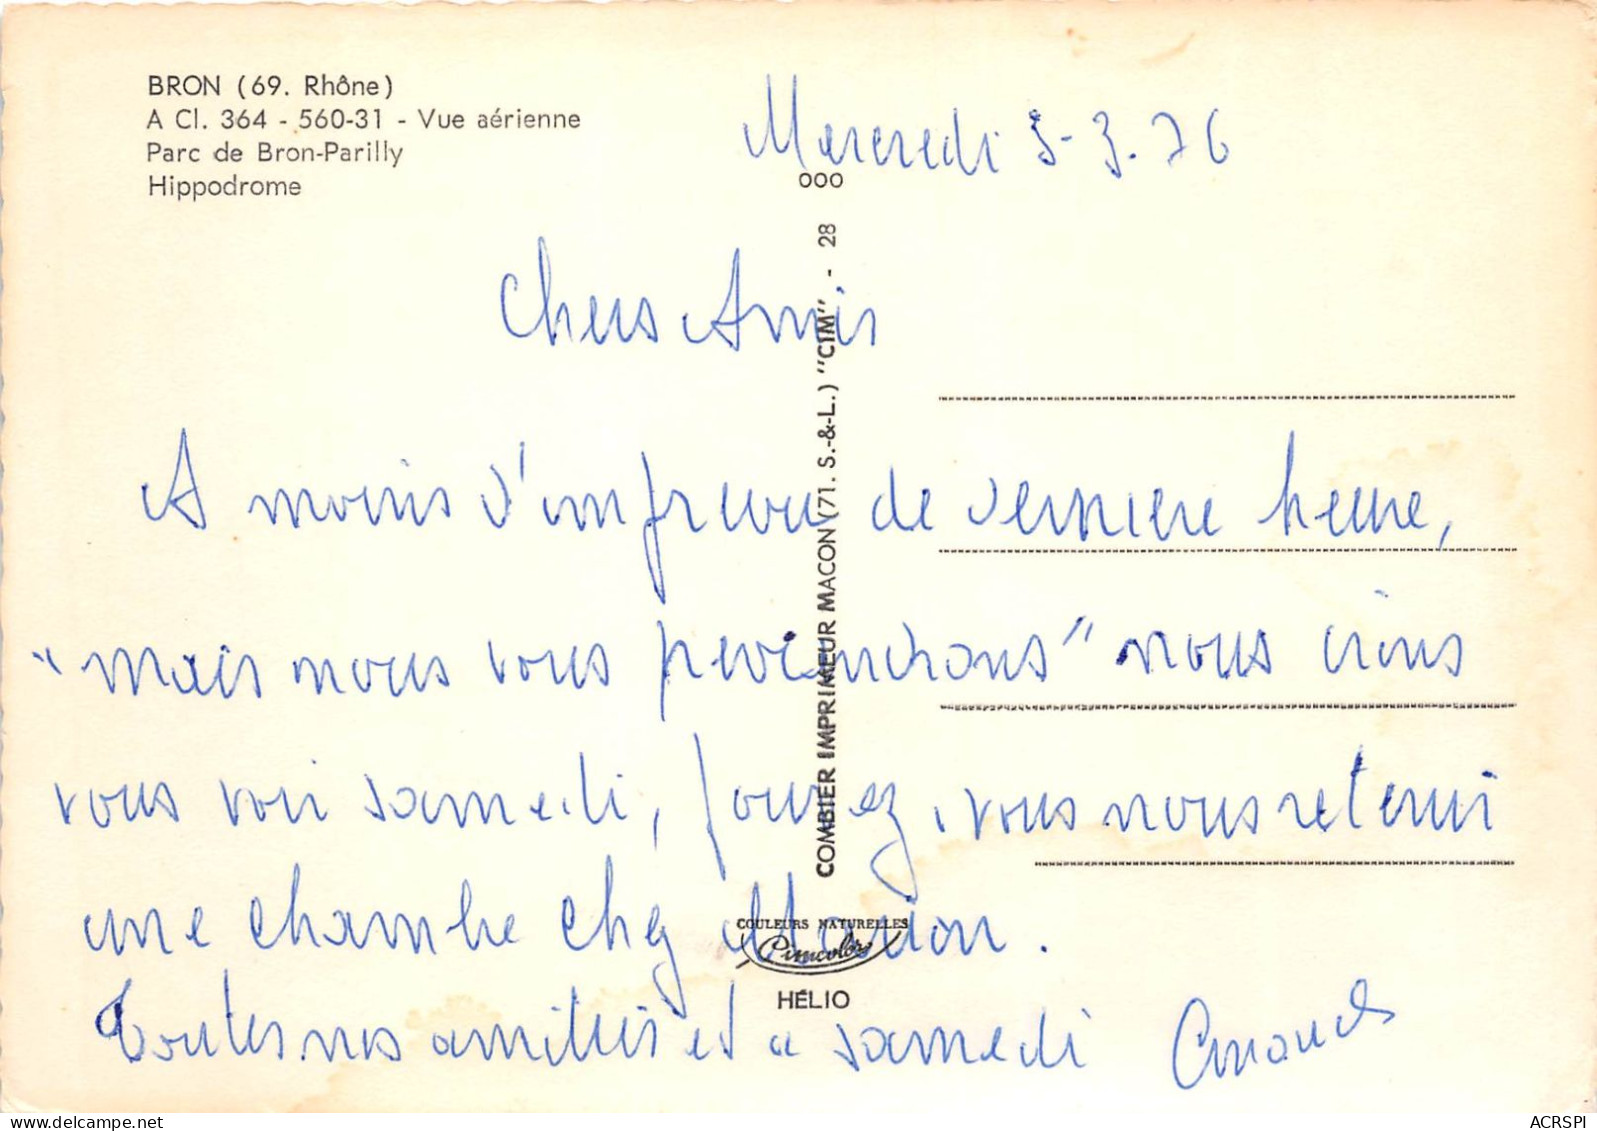 BRON (69. Rhône)
A Cl. 364 - 560-31 - Vue aérienne
Parc de Bron-Parilly
Hippodrome
Mercredi 3-3.76
000
COMBIER IMPRIMEUR MACON (71. S.-&-L.) "CIM" - 28
Chers Amis
A moins d'imprevu de derniere heure,
"mais nous vous previendrons" nous irons
vous voir samedi, pouvez-vous nous retenir
une chambre chez Marion.
Toutes nos amitiés et a samedi
COULEURS NATURELLES
Cimcolor
HÉLIO
ACRSPI